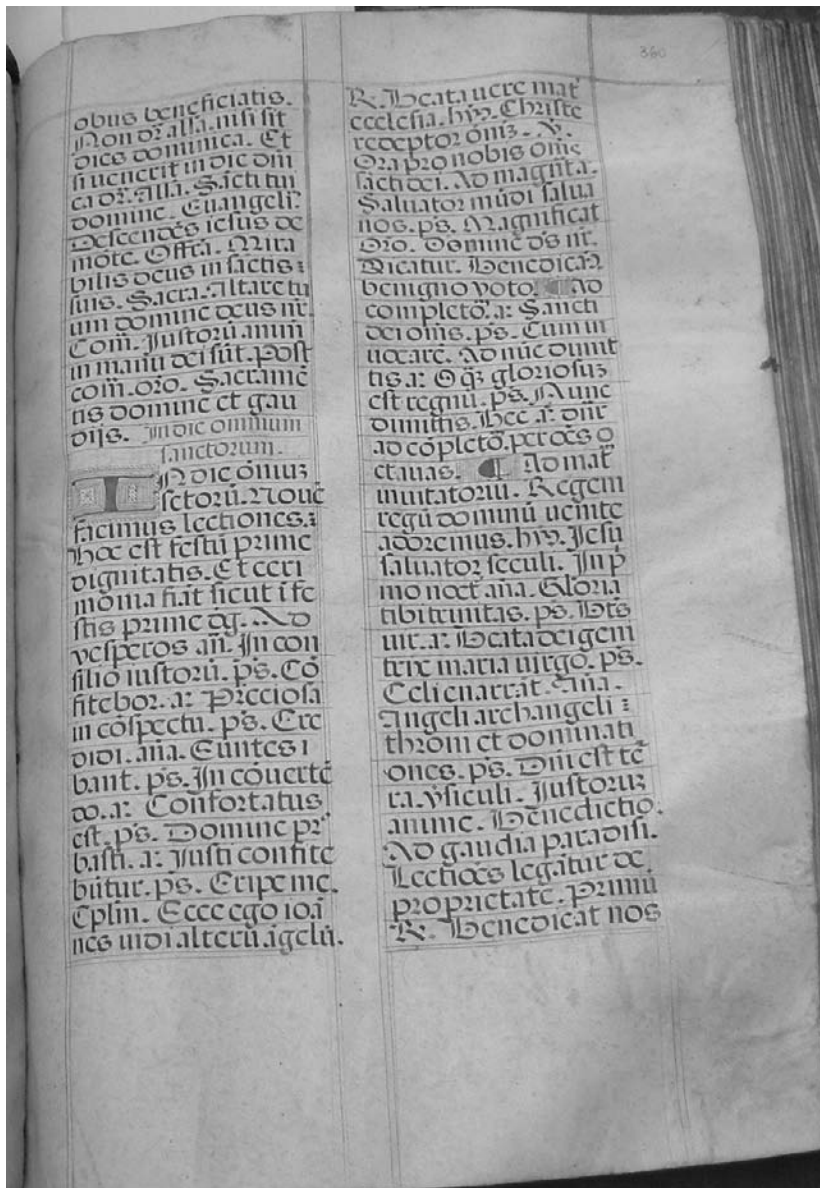 360
obus beneficiatis.
Non dr̄ alľa. nisi sit
dies dominica. Et
si uenerit in die dm̄
ca dr̄. Alľa. Sācti tui
domine. Euangeľ.
Descendēs iesus de
mōte. Offrā. Mira
bilis deus in sāctis :
suis. Sacra. Altare tu
um domine deus nr̄.
Com̄. Justorū anim̄
in manu dei sūt. Post
com̄. oro. Sacramē
tis domine et gau
dijs. In die omnium
sanctorum.
IN die ōmiuʒ
sctorū. Nouē
facimus lectiones. :
Hoc est festū prime
dignitatis. Et ceri
monia fiāt sicut ī fe
stis prime dḡ. Ad
vesperos an̄. In con
silio iustorū. ps̄. Cō
fitebor. a: Preciosa
in cōspectu. ps̄. Cre
didi. an̄a. Euntes i
bant. ps̄. In cōuertē
do. a: Confortatus
est. ps̄. Domine pr̄
basti. a: Justi confitē
būtur. ps̄. Eripe me.
Cplm̄. Ecce ego ioā
nes uidi alterū āgelū.
R. Beata uere mat̄
ecclesia. hyͫ. Christe
redēptor ōmiʒ. V.
Ora pro nobis om̄s
sācti dei. Ad magn̄ta.
Saluator mūdi salua
nos. ps̄. Magnificat
Oro. Domine ds̄ nr̄.
Dicatur. Benedicam̄
benigno voto. Ad
completō. a: Sancti
dei om̄s. ps̄. Cum in
uocare. Ad nūc dimit
tis a: O q̄ʒ gloriosuʒ
est regnū. ps̄. Nunc
dimittis. Hec a: dr̄
ad cōpletō. per oēs o
ctauas. Ad mat̄
inuitatoriū. Regem
regū dominū uenite
adoremus. hyͫ. Jesu
saluator seculi. In p̄
mo noct̄ an̄a. Gloria
tibi trinitas. ps̄. Bt̄s
uir. a: Beata dei geni
trix maria uirgo. ps̄.
Celi enarrāt. An̄a.
Angeli archangeli :
throni et dominati
ones. ps̄. Dn̄i est tē
ra. ysiculi. Justoruʒ
anime. Bēnedictio.
Ad gaudia paradisi.
Lectiōes legātur de
proprietate. Primū
R. Benedicat nos